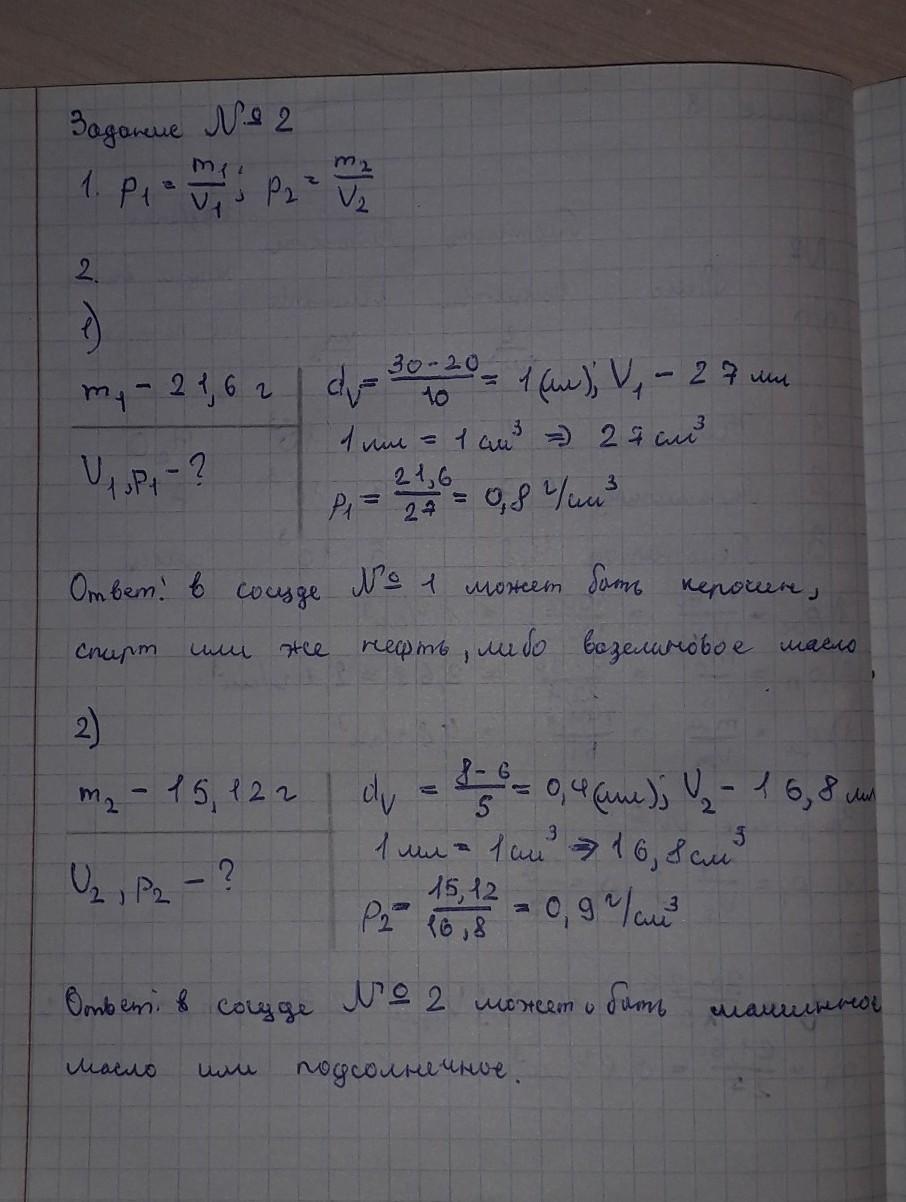 Задание № 2
1. p₁ = m₁/V₁; p₂ = m₂/V₂
2.
1)
m₁ - 21,6 г
d_V = (30-20)/10 = 1 (мл); V₁ - 27 мл
1 мл = 1 см³ ⇒ 27 см³
V₁, p₁ - ?
p₁ = 21,6/27 = 0,8 г/см³
Ответ: в сосуде № 1 может быть керосин,
спирт или же нефть, либо вазелиновое масло
2)
m₂ - 15,12 г
d_V = (8-6)/5 = 0,4 (мл); V₂ - 16,8 мл
1 мл = 1 см³ ⇒ 16,8 см³
V₂, p₂ - ?
p₂ = 15,12/16,8 = 0,9 г/см³
Ответ: в сосуде № 2 может быть машинное
масло или подсолнечное.